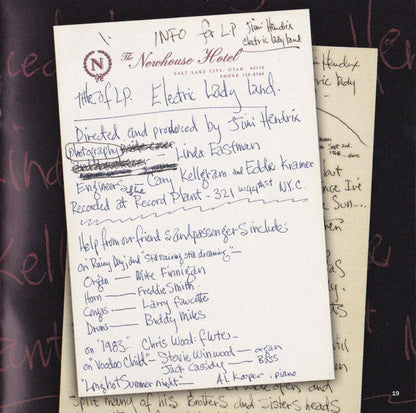 1.
INFO for LP Jimi Hendrix
electric lady land
N
The Newhouse Hotel
SALT LAKE CITY, UTAH 84110
PHONE 328-8388
Title of LP. Electric Lady Land.
Directed and produced by Jimi Hendrix
photography Linda Eastman
Engineers Gary Kellgram and Eddie Kramer
Recorded at Record Plant - 321 W 44th St N.Y.C.
Help from our friends and passengers includes
on "Rainy Day," and "Still raining still dreaming" -
Organ — Mike Finnigan
Horn — Freddie Smith
Congas — Larry Faucette
Drums — Buddy Miles
on "1983" - Chris Wood: flutes -
on "Voodoo Child" - Stevie Winwood - organ
Jack Cassidy - BASS
"Long hot Summer night" — Al Kooper - piano
Hendrix
lady
but
Sun...
split many of his Brothers and Sisters heads
19